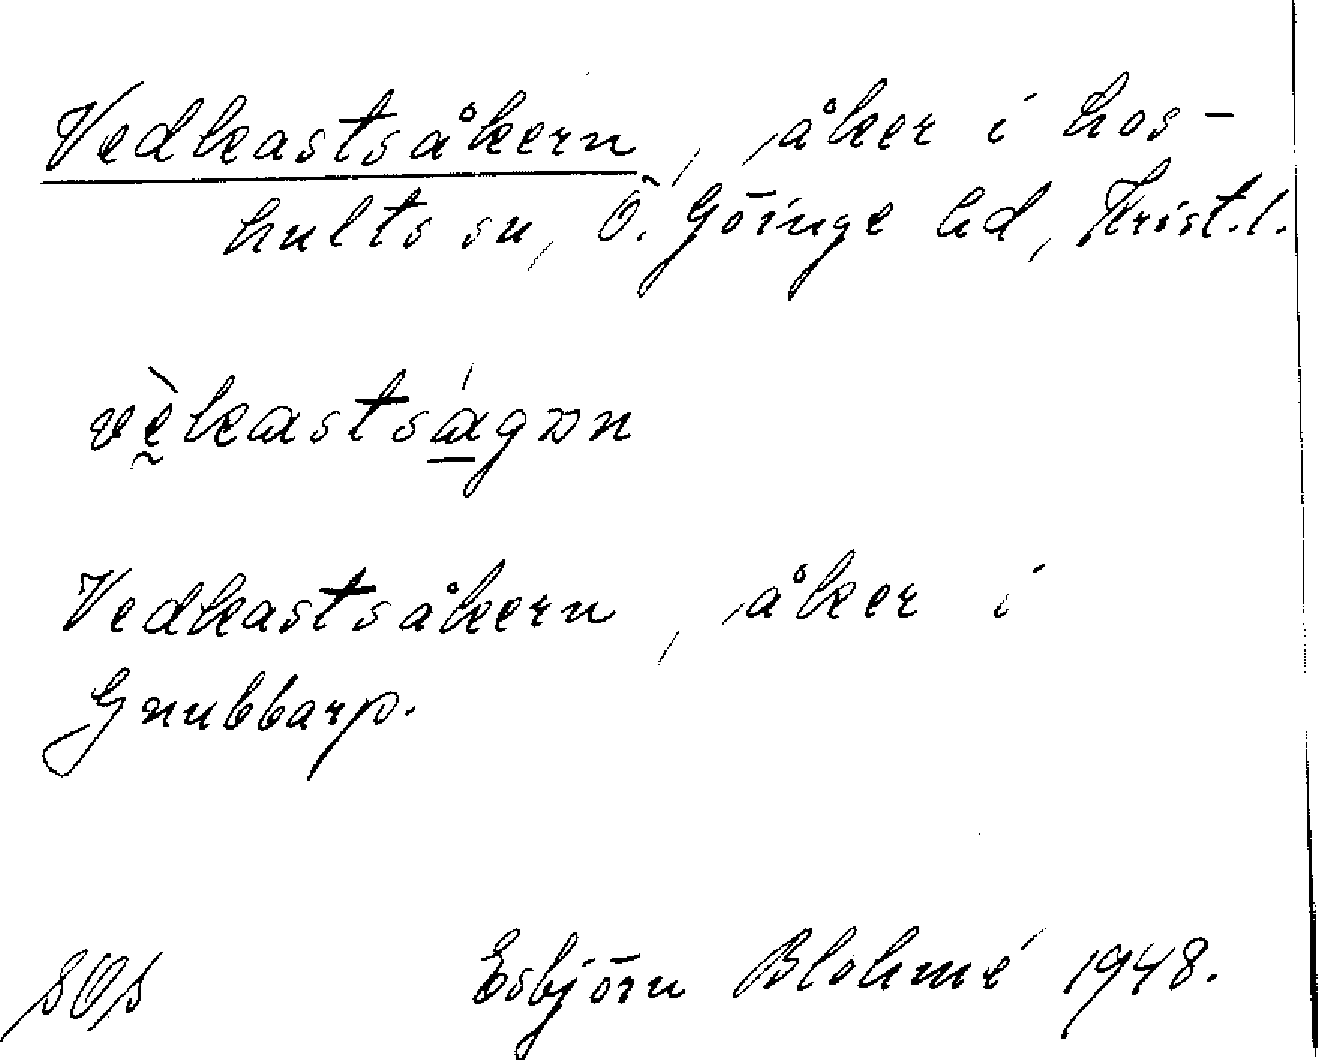 Vedkastsåkern, åker i Los-
hults sn, Ö. Göinge hd, Krist.l.
vḛ̀kastsá̱gɒn
Vedkastsåkern, åker i
Gnubbarp.
SOS Esbjörn Blohmé 1948.